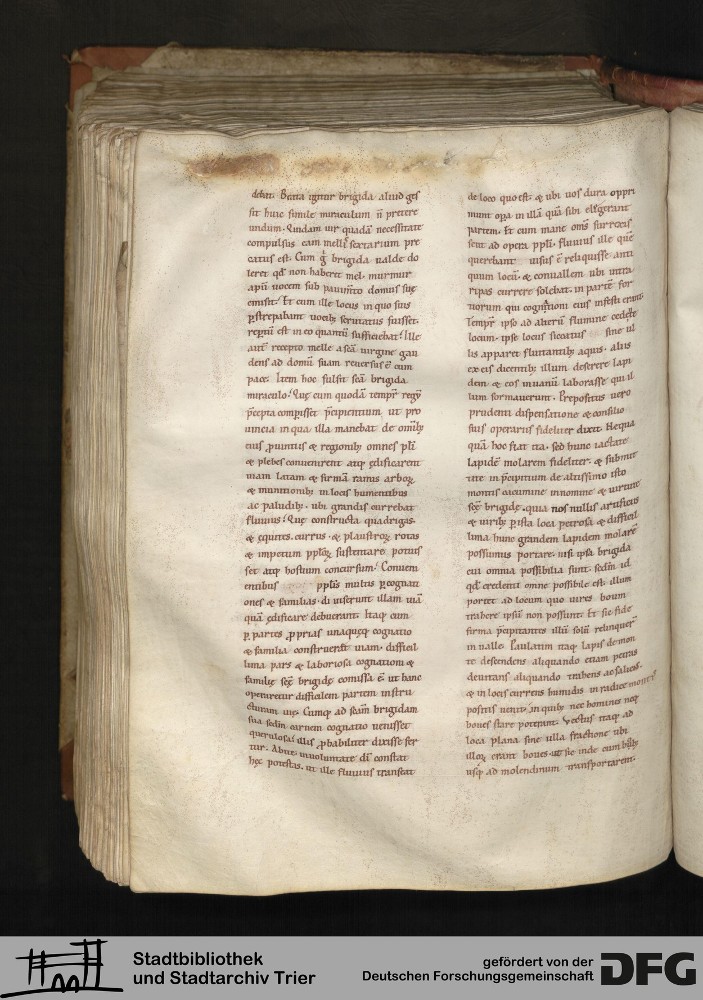 debat. Beata igitur brigida aliud ges
sit huic simile miraculum ii preterе
undum. Quidam uir quadā necessitate
compulsus eam mellꝭ sextarium pre
catus est. Cum ḡ brigida ualde do
leret qd̄ non haberet mel. murmur
apū uocem sub pauimto domus suę
emisit. Et cum ille locus in quo suis
ꝑstrepabant uocibꝫ scrutatus fuisset.
reꝑtū est in eo quantū sufficiebat. Ille
autē recepto melle a scā uirgine gau
dens ad domū suam reuersus ē cum
pace. Item hoc fulsit scā brigida
miraculo. Quę cum quodā tempꝛ regꝭ
p̄cepta cōpisset p̄cipientium ut pro
uincia in qua illa manebat de omībꝫ
eius ꝓuintiis & regionibꝫ omnes ppli
& plebes conuenirent atqꝫ ędificarent
uiam latam & firmā ramis arboꝝ
& munitionibꝫ in locis humentibus
ac paludibꝫ. ubi grandis currebat
fluuius. Quę constructa quadrigas.
& equites. currus. & plaustroꝝ rotas
& impetum ppłoꝝ sustentare potuis
set atqꝫ hostium concursum. Conueni
entibus pplis multis ꝑ cognati
ones & familias. diuiserunt illam uiā
quā ędificare debuerant. Itaqꝫ cum
ꝑ partes ꝓprias unaquęqꝫ cognatio
& familia construerēt uiam. difficil
lima pars & laboriosa cognationi &
familię scę brigidę comissa ē ut hanc
operiretur difficilem partem instru
cturam uię. Cumqꝫ ad scām brigidam
sua sedm̄ carnem cognatio uenisset
querulosa. illis ꝓbabiliter dixisse fer
tur. Abite. in uoluntate dī constat
hęc potestas. ut ille fluuius transeat
de loco quo est. & ubi uos dura oppri
munt opa in illā quā sibi elegerant
partem. Et cum mane oms̄ surrexis
sent ad opera ppli. fluuius ille quē
querebant uisus ē reliquisse anti
quum locū. & conuallem ubi intra
ripas currere solebat. in partē for
tiorum qui cognationi eius infesti erant.
Tempꝛ ipso ad alterū flumine cedente
locum. ipse locus siccatus sine ul
lis apparet fluitantibꝫ aquis. aliis
ex eis dicentibꝫ illum deserere lapi
dem & eos in uanū laborasse qui il
lum formauerunt. Prepositus uero
prudenti dispensatione & consilio
suis operariis fideliter dixit. Nequa
quā hoc fiat ita. sed hunc iactate
lapidē molarem fideliter. & submit
tite in p̄cipitium de altissimo isto
montis cacumine in nomine & uirtute
scę brigidę. quia nos nullis artificiis
& uiribꝫ ꝑ ista loca petrosa & difficil
lima hunc grandem lapidem molarē
possumus portare. nisi ipsa brigida
cui omnia possibilia sunt. sedm̄ id
qd̄ credenti omne possibile est. illum
portet ad locum quo uires boum
trahere ipsū non possunt. Et sic fide
firma p̄cipitantes illū solū relinquunt
in ualle. Paulatim itaqꝫ lapis de mon
te descendens aliquando etiam petras
deuitans aliquando trahens ac saliens.
& in locis currens humidis in radice montis
positis uenit. in quibꝫ nec homines neqꝫ
boues stare poterant. Vectus itaqꝫ ad
loca plana sine ulla fractione ubi
illoꝝ erant boues. ut sic inde cum bibꝫ
usqꝫ ad molendinum transportarent.
Stadtbibliothek
und Stadtarchiv Trier
gefördert von der
Deutschen Forschungsgemeinschaft
DFG